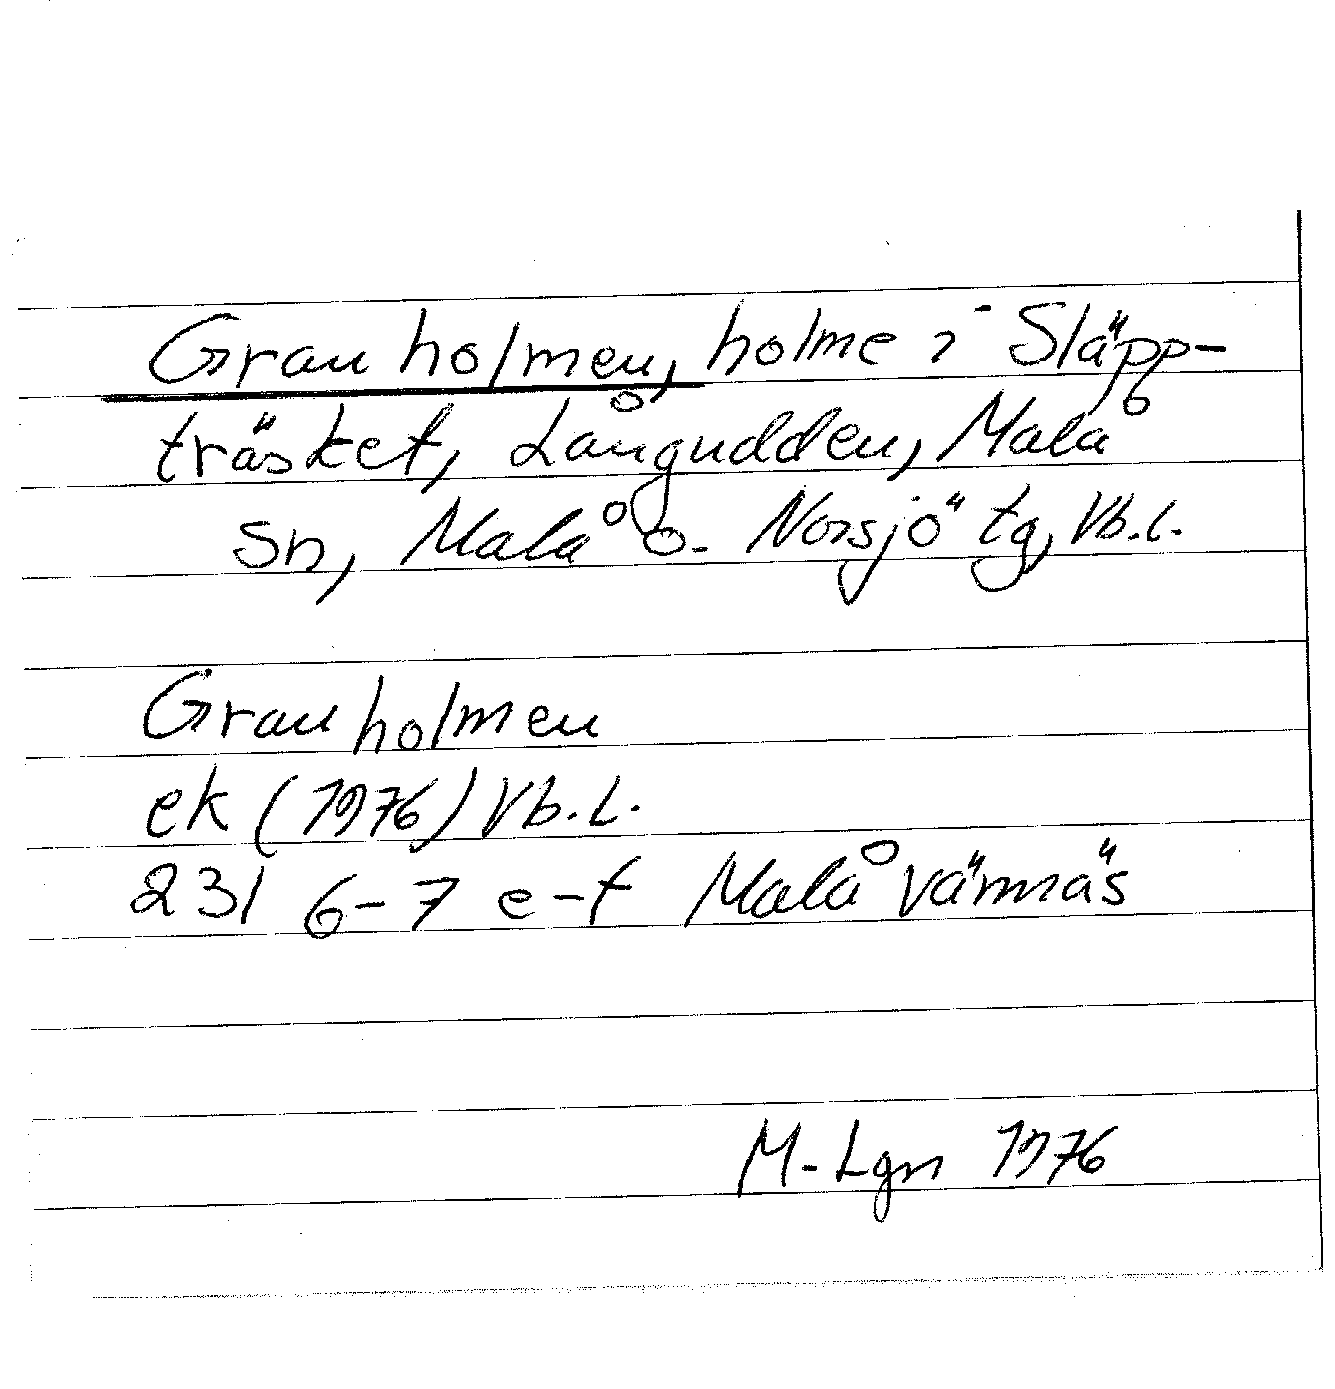 Granholmen, holme i Släpp-
träsket, Långudden, Malå
sn, Malå o. Norsjö tg, Vb.l.
Granholmen
ek (1976) Vb.l.
231 6-7 e-f Malåvännäs
M-Lgn 1976